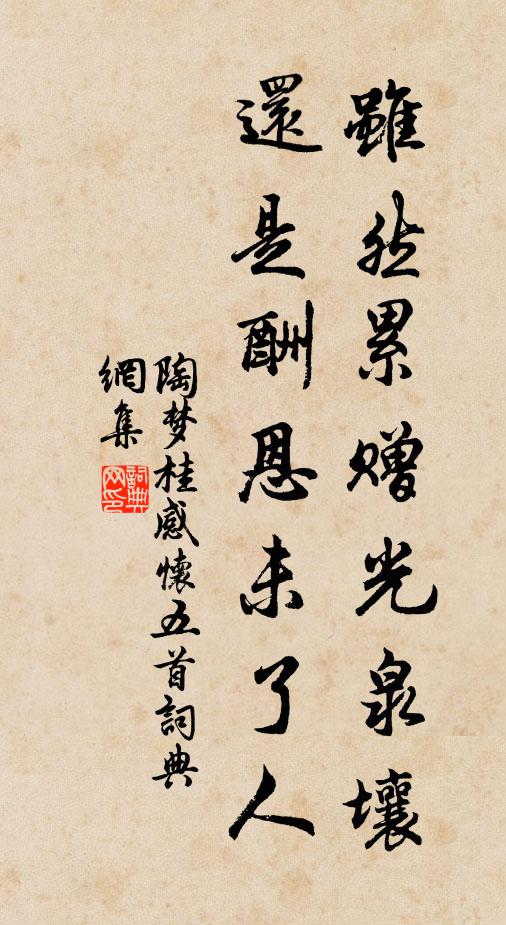 雖然累贈光泉壤
還是酬恩未了人
陶梦桂感懷五首詞典
網集
詞典
网印